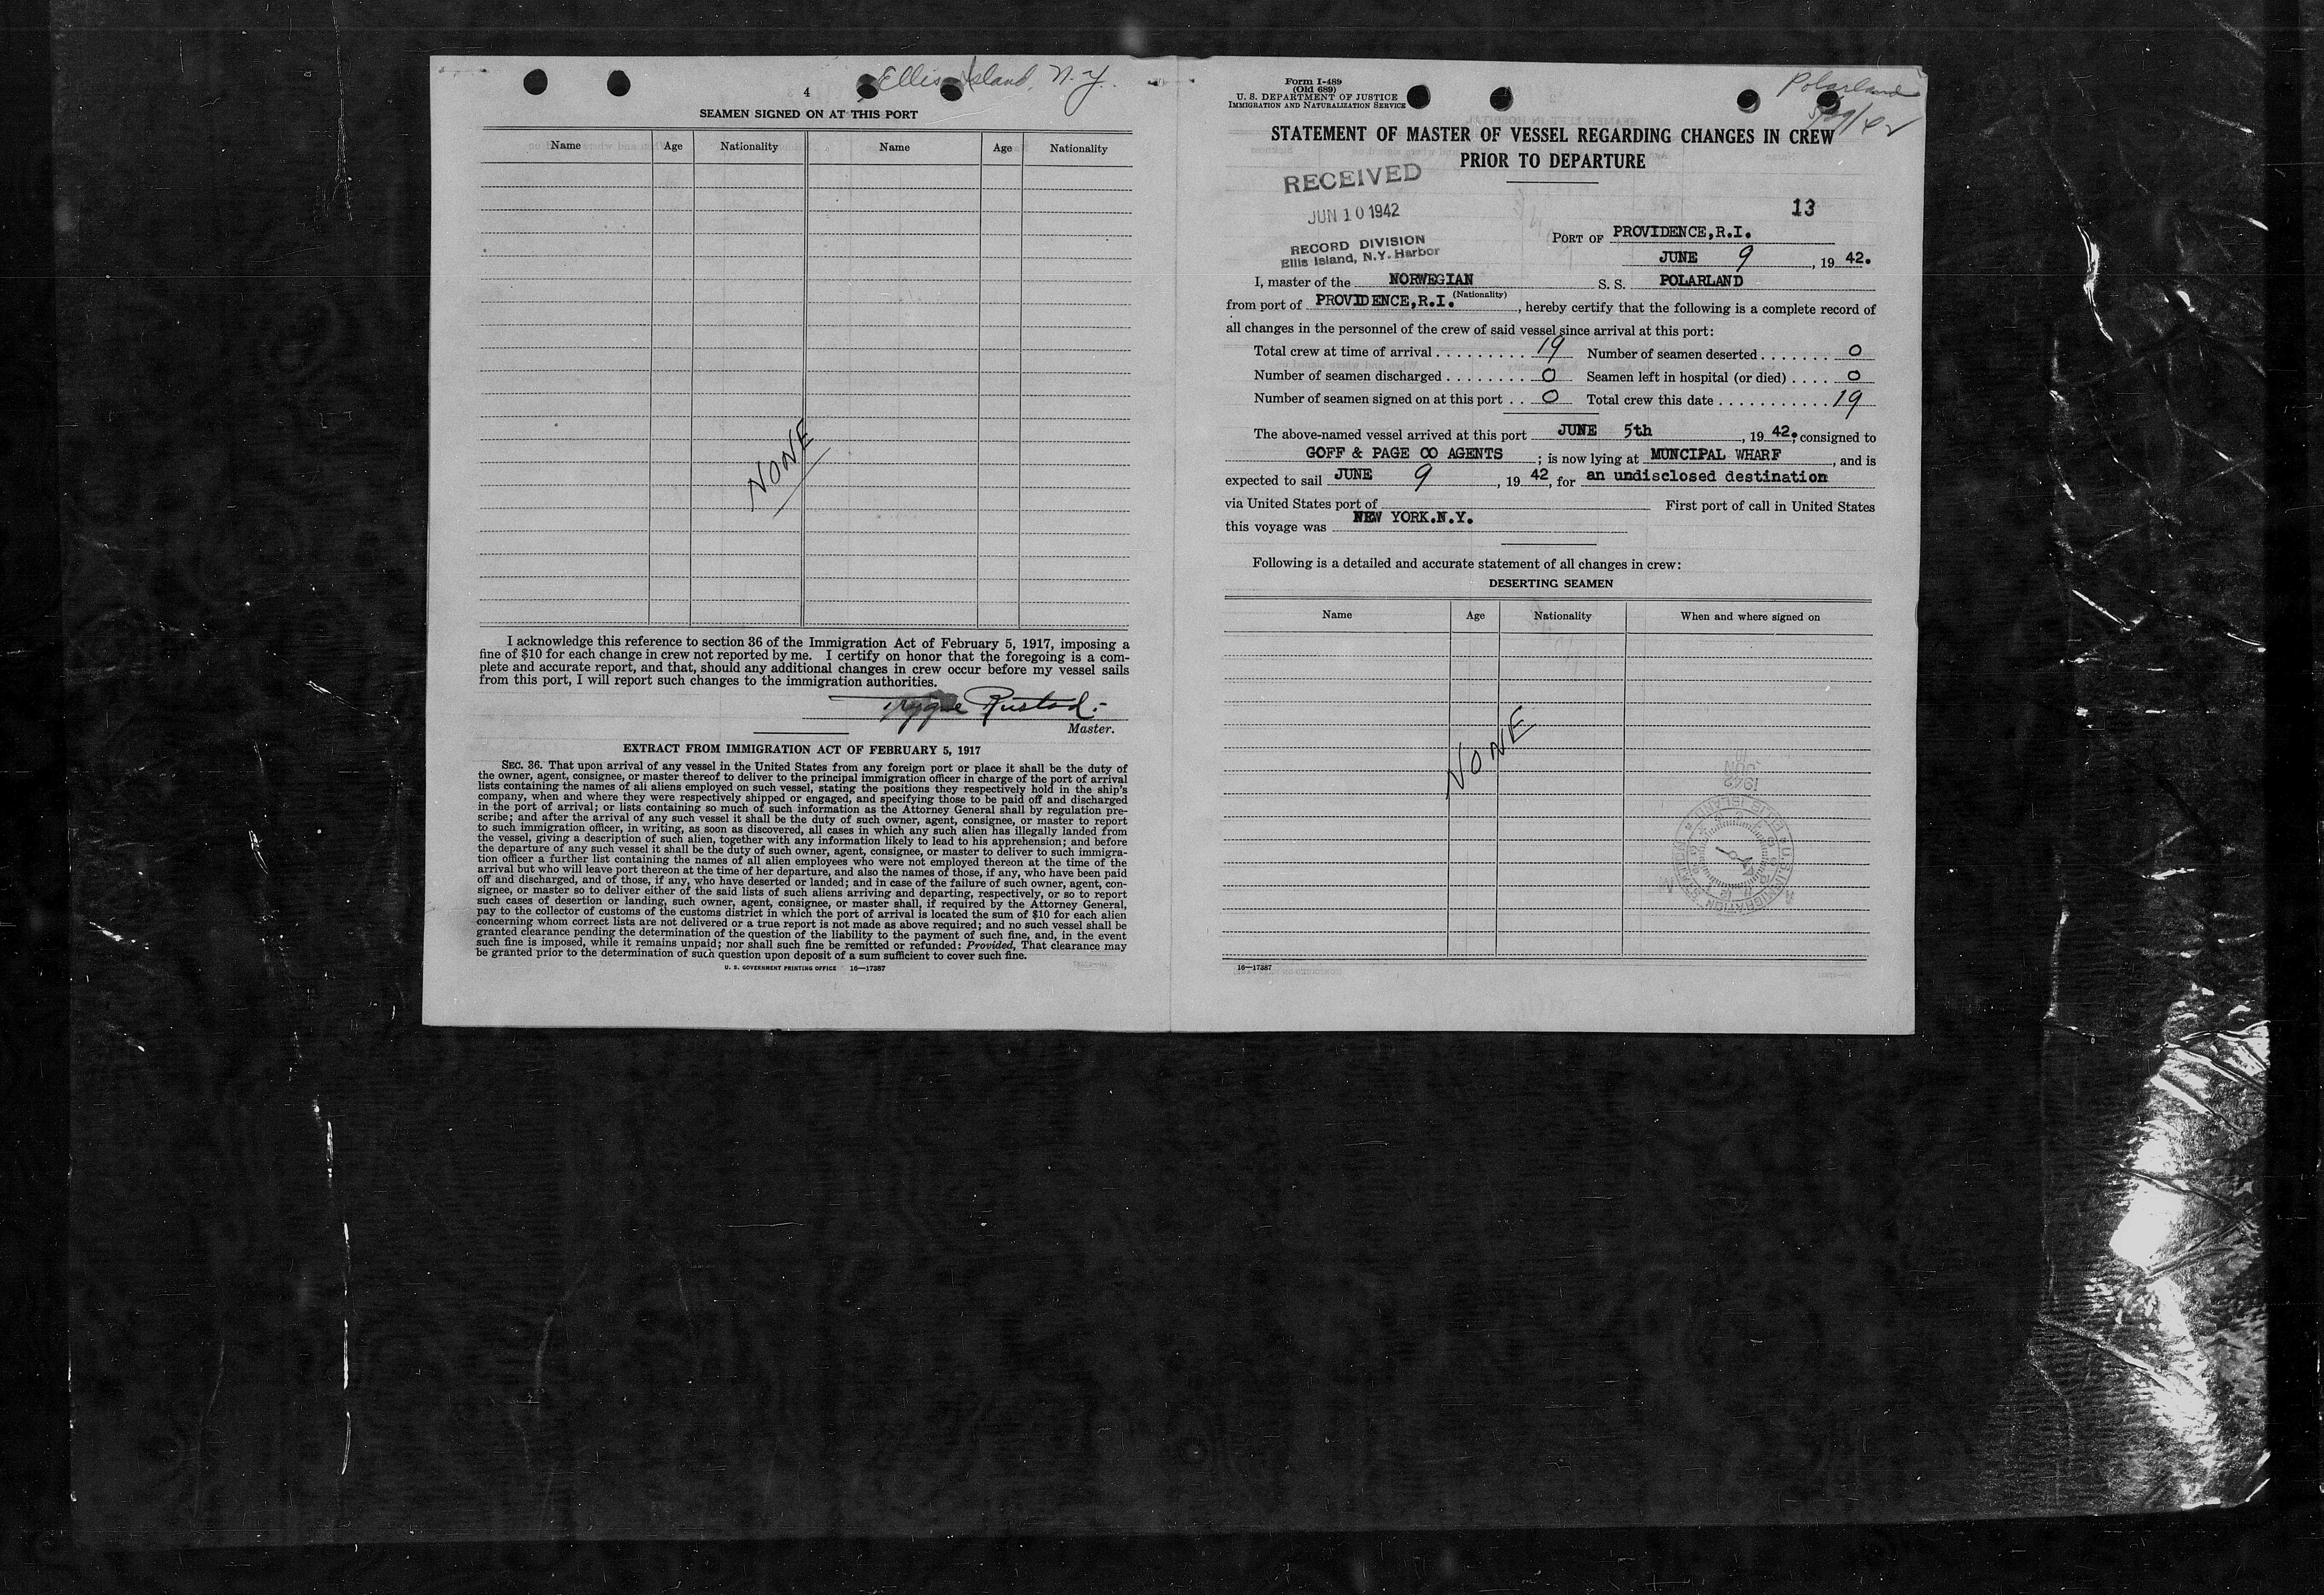 Ellis Island, N.Y.
4
SEAMEN SIGNED ON AT THIS PORT
Name Age Nationality Name Age Nationality
NONE
I acknowledge this reference to section 36 of the Immigration Act of February 5, 1917, imposing a
fine of $10 for each change in crew not reported by me. I certify on honor that the foregoing is a com-
plete and accurate report, and that, should any additional changes in crew occur before my vessel sails
from this port, I will report such changes to the immigration authorities.
Trygve Rustad.-
Master.
EXTRACT FROM IMMIGRATION ACT OF FEBRUARY 5, 1917
SEC. 36. That upon arrival of any vessel in the United States from any foreign port or place it shall be the duty of
the owner, agent, consignee, or master thereof to deliver to the principal immigration officer in charge of the port of arrival
lists containing the names of all aliens employed on such vessel, stating the positions they respectively hold in the ship's
company, when and where they were respectively shipped or engaged, and specifying those to be paid off and discharged
in the port of arrival; or lists containing so much of such information as the Attorney General shall by regulation pre-
scribe; and after the arrival of any such vessel it shall be the duty of such owner, agent, consignee, or master to report
to such immigration officer, in writing, as soon as discovered, all cases in which any such alien has illegally landed from
the vessel, giving a description of such alien, together with any information likely to lead to his apprehension; and before
the departure of any such vessel it shall be the duty of such owner, agent, consignee, or master to deliver to such immigra-
tion officer a further list containing the names of all alien employees who were not employed thereon at the time of the
arrival but who will leave port thereon at the time of her departure, and also the names of those, if any, who have been paid
off and discharged, and of those, if any, who have deserted or landed; and in case of the failure of such owner, agent, con-
signee, or master so to deliver either of the said lists of such aliens arriving and departing, respectively, or so to report
such cases of desertion or landing, such owner, agent, consignee, or master shall, if required by the Attorney General,
pay to the collector of customs of the customs district in which the port of arrival is located the sum of $10 for each alien
concerning whom correct lists are not delivered or a true report is not made as above required; and no such vessel shall be
granted clearance pending the determination of the question of the liability to the payment of such fine, and, in the event
such fine is imposed, while it remains unpaid; nor shall such fine be remitted or refunded: Provided, That clearance may
be granted prior to the determination of such question upon deposit of a sum sufficient to cover such fine.
U. S. GOVERNMENT PRINTING OFFICE 16—17387
Form I-489
(Old 689)
U. S. DEPARTMENT OF JUSTICE
IMMIGRATION AND NATURALIZATION SERVICE
Polarland
5/29/42
STATEMENT OF MASTER OF VESSEL REGARDING CHANGES IN CREW
PRIOR TO DEPARTURE
RECEIVED
JUN 10 1942
RECORD DIVISION
Ellis Island, N.Y. Harbor
13
PORT OF PROVIDENCE,R.I.
JUNE 9, 19 42.
I, master of the NORWEGIAN S. S. POLARLAND
(Nationality)
from port of PROVIDENCE,R.I., hereby certify that the following is a complete record of
all changes in the personnel of the crew of said vessel since arrival at this port:
Total crew at time of arrival . . . . . . . . . 19 Number of seamen deserted . . . . . . . 0
Number of seamen discharged . . . . . . . . 0 Seamen left in hospital (or died) . . . . 0
Number of seamen signed on at this port . . 0 Total crew this date . . . . . . . . . . . 19
The above-named vessel arrived at this port JUNE 5th, 19 42.; consigned to
GOFF & PAGE CO AGENTS; is now lying at MUNCIPAL WHARF, and is
expected to sail JUNE 9, 19 42, for an undisclosed destination
via United States port of First port of call in United States
this voyage was NEW YORK.N.Y.
Following is a detailed and accurate statement of all changes in crew:
DESERTING SEAMEN
Name Age Nationality When and where signed on
NONE
16—17387